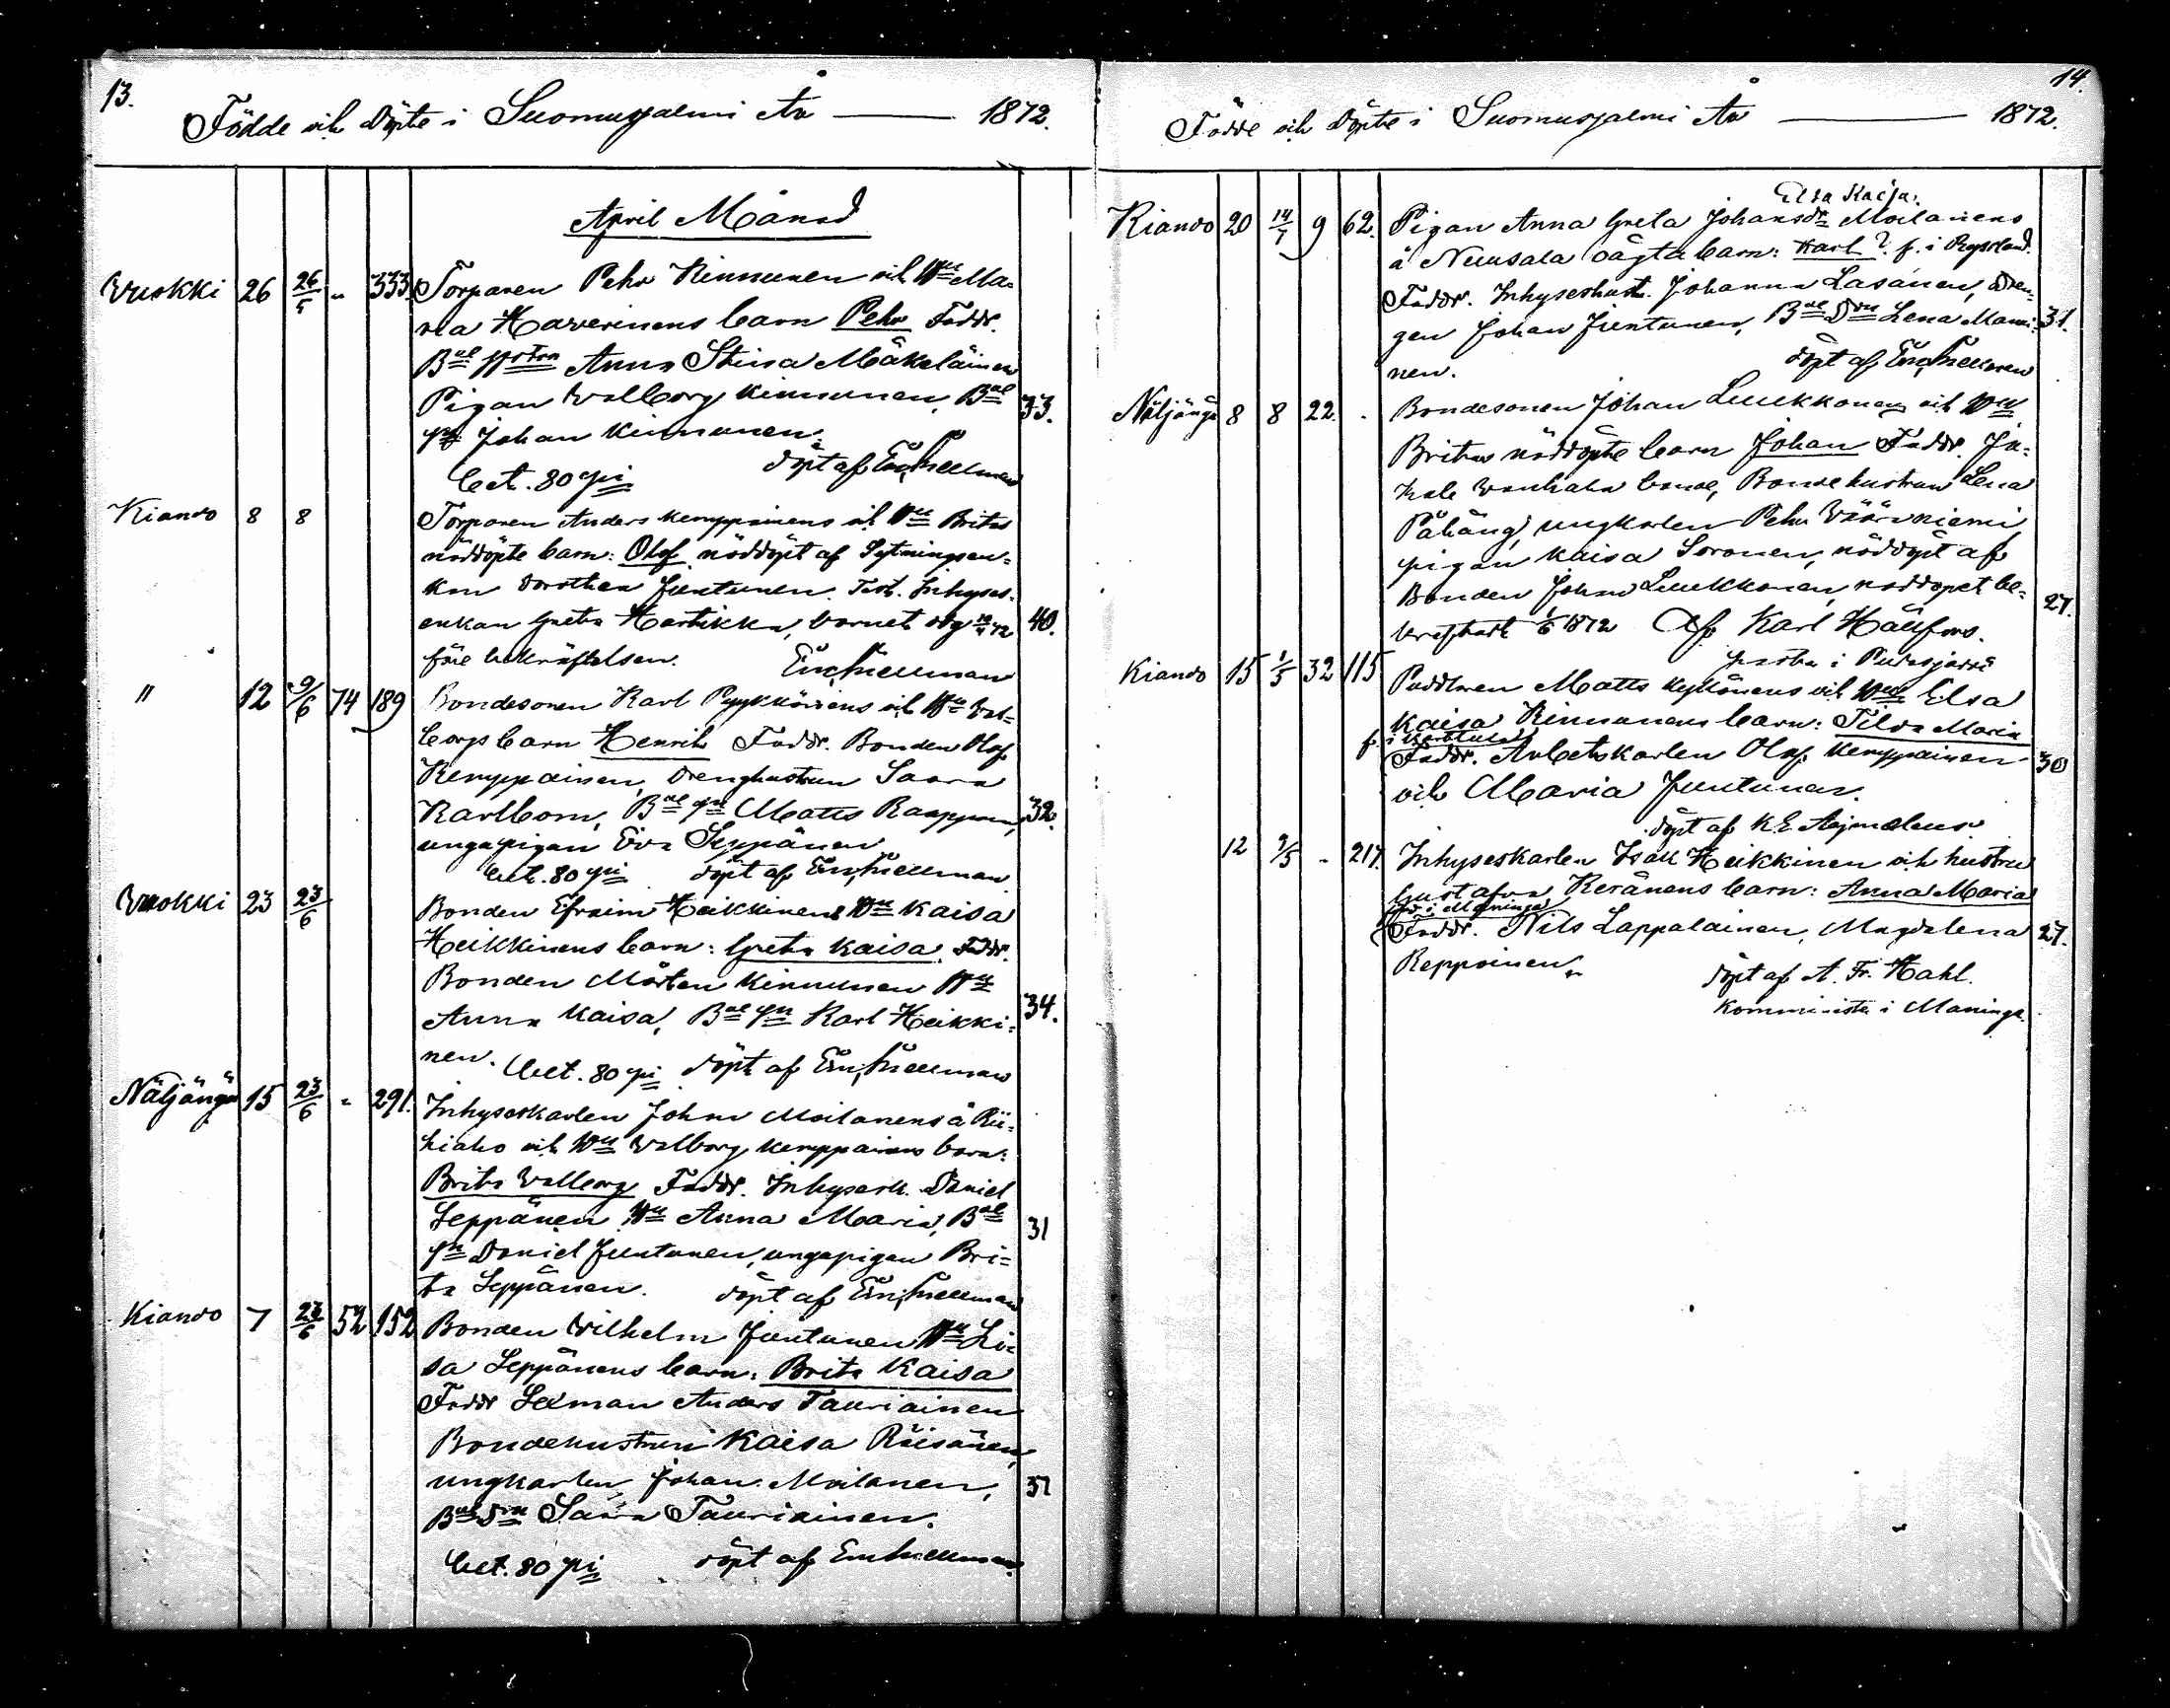 13.
Födde och Döpte i Suomusjalmi År — 1872.
April Månad
Wuokki 26 26/5 " 333. Torparen Pehr Kinnunen och Hu Ma-
ria Haverinens barn Pehr Faddr.
Anna Stina Mäkeläinen
Pigan Walborg Kinnunen, Bde
Johan Kinnunen.
bet. 80 pi döpt af Em. Snellman
33.
Kiando 8 8 Torparen Anders Kemppainens och Hu Britas
nöddöpte barn: Olof nöddöpt af Sytningsen-
kan Dorothea Juntunen. Test. Inhyses-
enkan Greta Hartikka, barnet dog 12/4 72 40.
före bekräftelsen. Em. Snellman
" 12 9/6 74 189 Bondesonen Karl Pyykköinens och Hu Wal-
borgs barn Henrik Faddr. Bonden Olof
Kemppainen, Drenghustrun Saara
Karlbom, Bde Matts Rauppinen, 32.
unga pigan Eva Seppänen
bet. 80 pi döpt af Em. Snellman
Wuokki 23 23/6 Bonden Efraim Heikkinens Hu Kaisa
Heikkinens barn: Greta Kaisa. Faddr.
Bonden Mårten Kinnunen Hu
Anna Kaisa, Bde Karl Heikki- 34.
nen. bet. 80 pi döpt af Em. Snellman
Näljänge 15 23/6 " 291. Inhyseskarlen Johan Moilanens å Rii-
hiaho och Hu Walborg Kemppainens barn:
Brita Walborg Faddr. Inhysesk. Daniel
Seppänen Hu Anna Maria, Bde 31
Daniel Juntunen, unga pigan Bri-
ta Seppänen. döpt af Em. Snellman
Kiando 7 23/6 52 152 Bonden Wilhelm Juntunen Hu Li-
sa Seppänens barn: Brita Kaisa
Faddr Sexman Anders Tauriainen
Bondehustrun Kaisa Räisänen,
ungkarlen Johan Moilanen, 37
Saara Tauriainen.
bet. 80 pi döpt af Em Snellman.
14.
Födde och Döpte i Suomusjalmi År — 1872.
Elsa Kaisa.
Kiando 20 14/7 9 62. Pigan Anna Greta Johansdr Moilanens
å Nuusala oägta barn: Karl? f. i Ryssland.
Faddr. Inhyseshust. Johanna Lasanen, Dren-
gen Johan Juntunen, Bde Lena Manni- 31.
nen. döpt af Em. Snellman
Näljänge 8 8 22. Bondesonen Johan Luukkonens och Hu
Britas nöddöpte barn Johan Faddr.
bonde, Bondehustrun Lena
Pähäng, ungkarlen Pehr Wääräniemi,
pigan Kaisa Soronen, nöddöpt af
Bonden Johan Luukkonen, nöddopet be-
kräftadt 1/6 1872 Af Karl Hällfors. 27.
i Pudasjarvi
Kiando 15 1/5 32 115 Matts Kyllönens och Hu Elsa
Kaisa Kinnunens barn: Tilda Maria
f. i Karttula
Faddr. Arbetskarlen Olof Kemppainen 30
och Maria Juntunen.
döpt af K. E. Aejmelaeus
12 9/5 " 217. Inhyseskarlen Isak Heikkinen och hustru
Gustafva Keränens barn: Anna Maria
född i Maninga
Faddr. Nils Lappalainen, Magdalena 27.
Reppoinen. döpt af A. Fr. Hahl.
Komminister i Maninga.